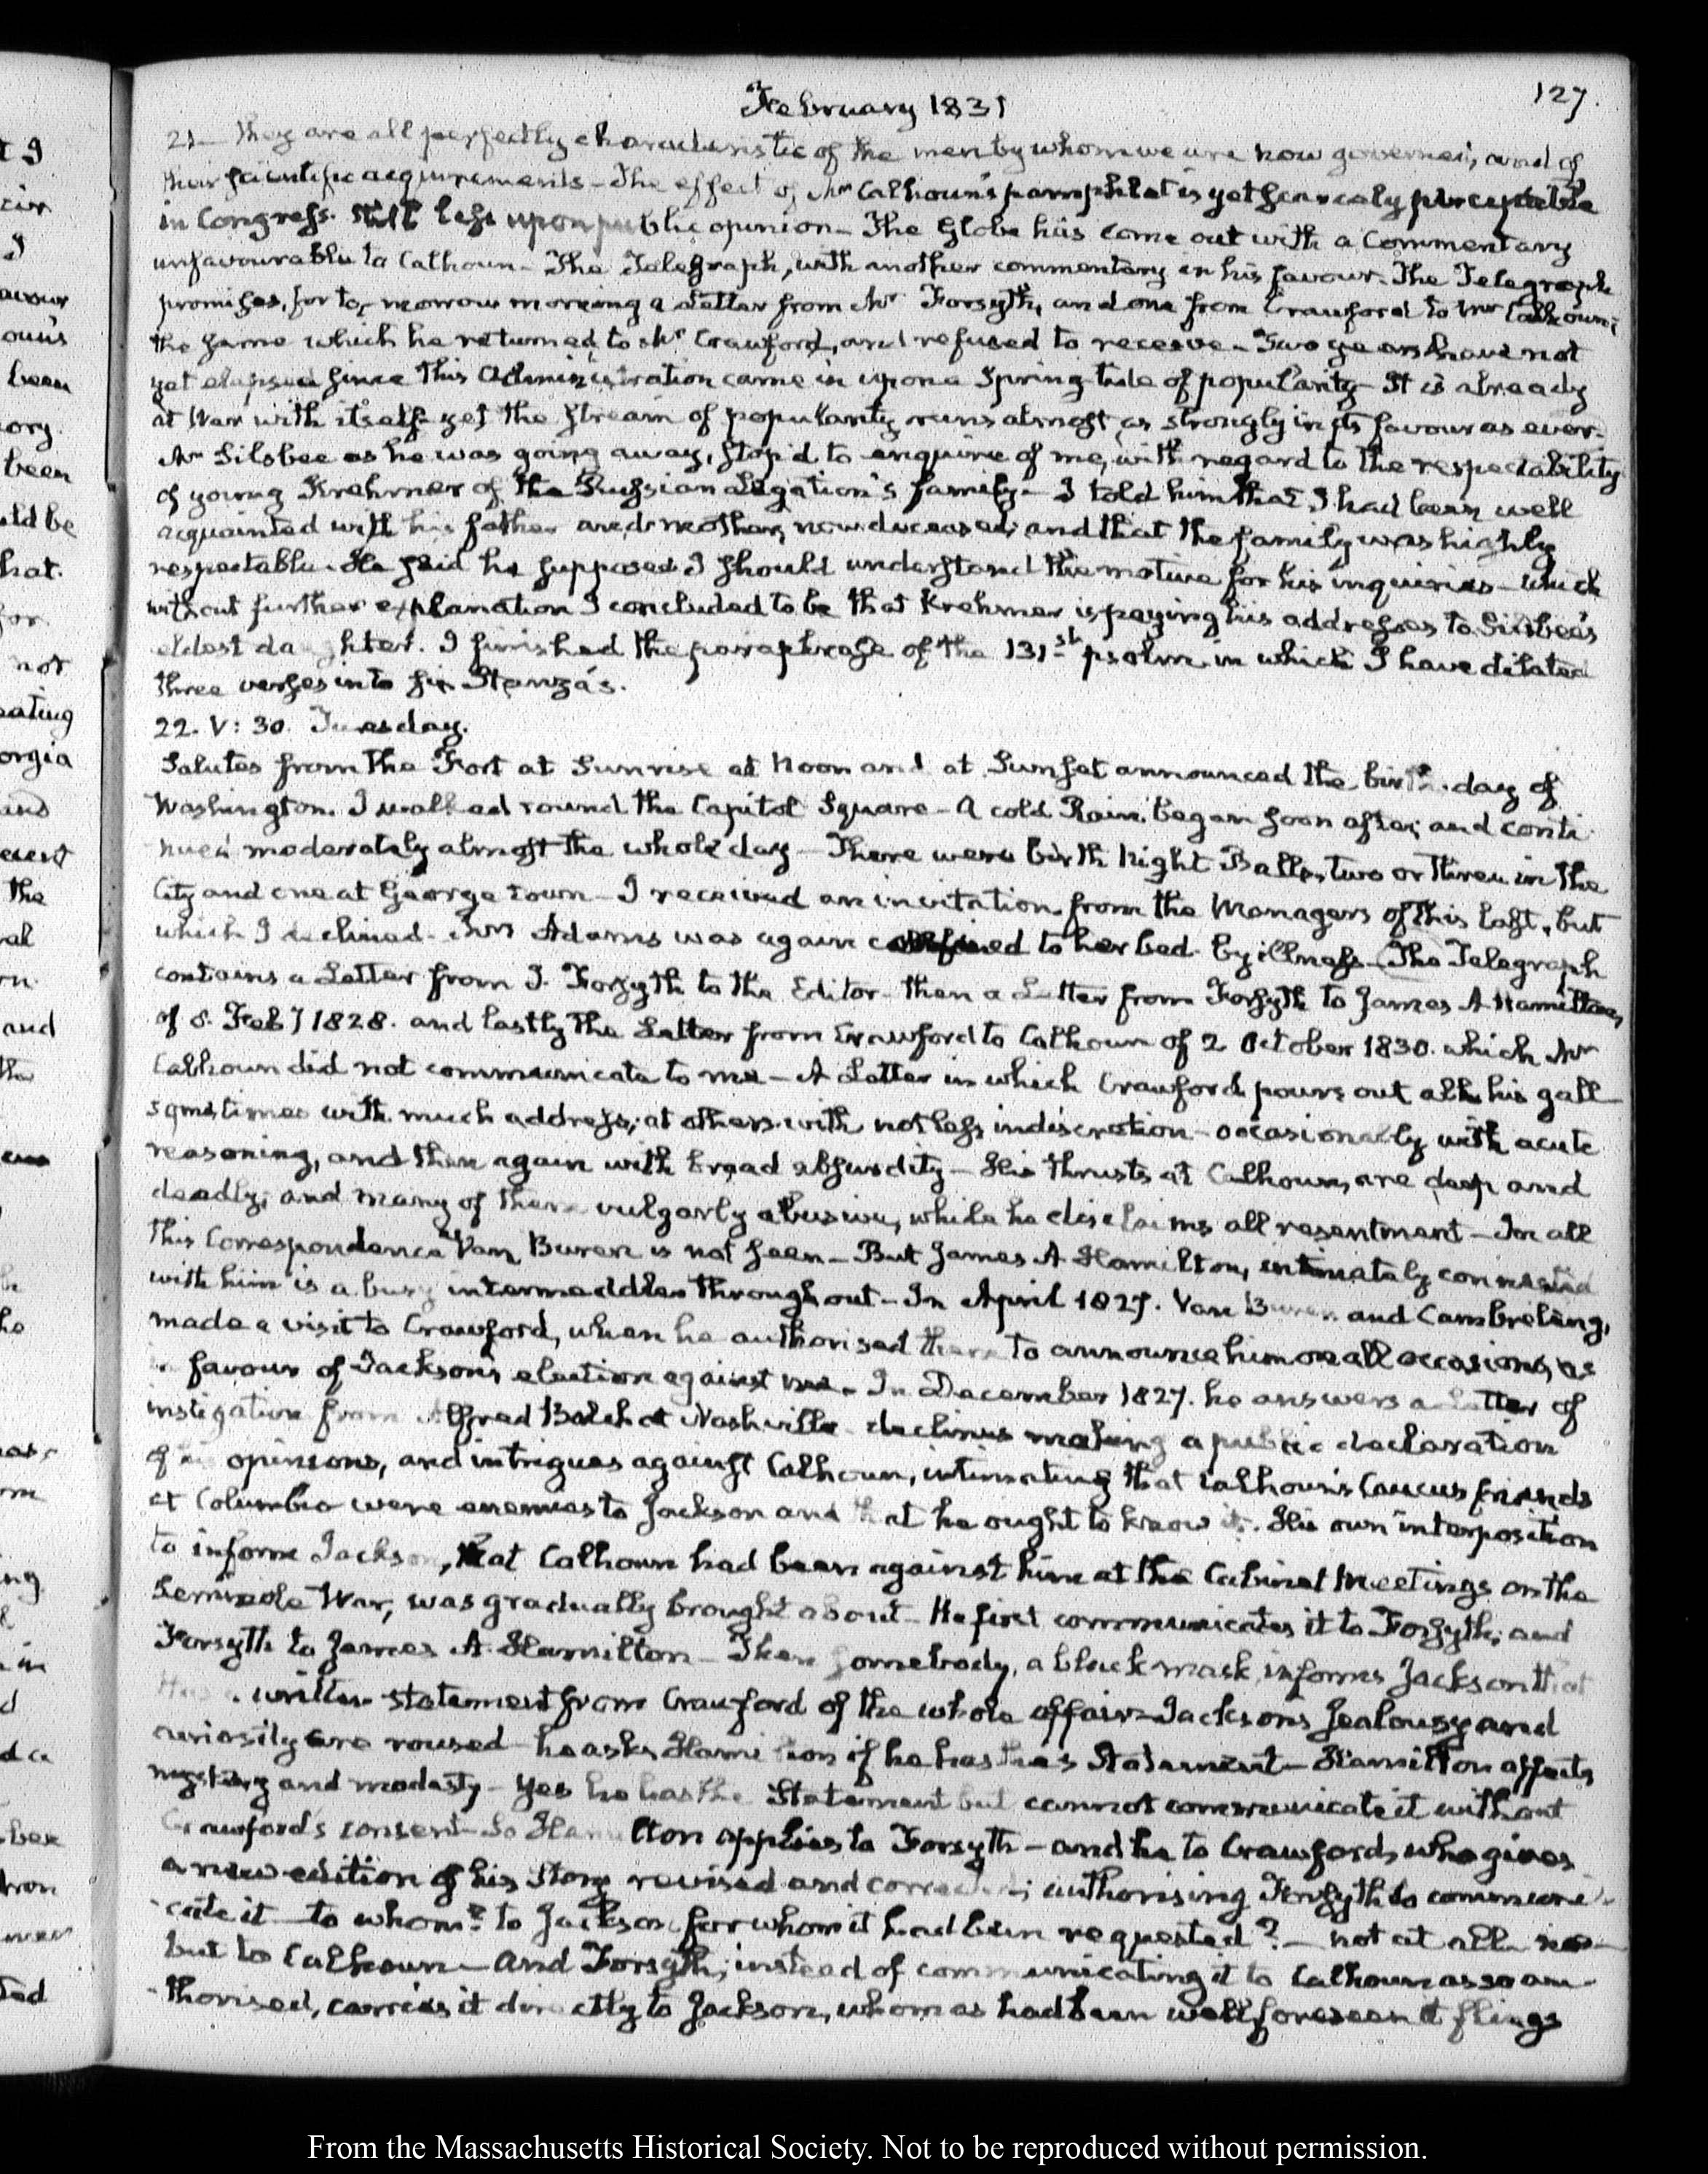 February 1831
127.
21— They are all perfectly characteristic of the men by whom we are now governed, and of
their scientific acquirements— The effect of Mr Calhoun's pamphlet is yet scarcely perceptible
in Congress. Still less upon public opinion— The Globe has come out with a Commentary
unfavourable to Calhoun— The Telegraph, with another commentary in his favour. The Telegraph
promises, for to-morrow morning a Letter from Mr Forsyth, and one from Crawford to Mr Calhoun;
the same which he returned to Mr Crawford, and refused to receive— Two years have not
yet elapsed since this Administration came in upon a Spring-tide of popularity— It is already
at War with itself— yet the stream of popularity runs almost as strongly in its favour as ever.
Mr Silsbee as he was going away, stop'd to enquire of me, with regard to the respectability
of young Krehmer of the Russian Legation's family— I told him that I had been well
acquainted with his father and mother, now deceased; and that the family was highly
respectable. He said he supposed I should understand the motive for his inquiries— which
without further explanation I concluded to be that Krehmer is paying his addresses to Silsbee's
eldest daughter. I finished the paraphrase of the 131st psalm in which I have dilated
three verses into six Stanza's.
22. V: 30. Tuesday.
Salutes from the Fort at Sunrise at Noon and at Sunset announced the birth-day of
Washington. I walked round the Capitol Square— A cold Rain began soon after, and conti-
nued moderately almost the whole day— There were birth Night Balls, two or three in the
City and one at George town— I received an invitation from the Managers of this last, but
which I declined. Mrs Adams was again confined to her bed by illness— The Telegraph
contains a Letter from J. Forsyth to the Editor— then a Letter from Forsyth to James A Hamilton,
of 8. Feby 1828. and lastly the Letter from Crawford to Calhoun of 2 October 1830. which Mr
Calhoun did not communicate to me— A Letter in which Crawford pours out all his gall
sometimes with much address, at others with not less indiscretion— occasionally with acute
reasoning, and then again with broad absurdity— His thrusts at Calhoun, are deep and
deadly; and many of them vulgarly abusive, while he disclaims all resentment— In all
this Correspondence Van Buren is not seen— But James A Hamilton, intimately connected
with him is a busy intermeddler throughout— In April 1827. Van Buren and Cambreleng,
made a visit to Crawford, when he authorised them to announce him on all occasions, as
in favour of Jackson's election against me. In December 1827. he answers a Letter of
instigation from Alfred Balch at Nashville— declines making a public declaration
of his opinions, and intrigues against Calhoun, intimating that Calhoun's Caucus friends
at Columbia were enemies to Jackson and that he ought to know it. His own interposition
to inform Jackson, that Calhoun had been against him at the Cabinet Meetings on the
Seminole War, was gradually brought about— He first communicates it to Forsyth; and
Forsyth to James A. Hamilton— Then somebody, a black mask, informs Jackson that
written statement from Crawford of the whole affair— Jackson's jealousy and
curiosity are roused— he asks Hamilton if he has this Statement— Hamilton affects
mystery and modesty— Yes he has the Statement but cannot communicate it without
Crawford's consent— So Hamilton applies to Forsyth— and he to Crawford, who gives
a new edition of his Story revised and corrected; authorising Forsyth to communi-
cate it— to whom? to Jackson, for whom it had been requested?— not at all no—
but to Calhoun— And Forsyth, instead of communicating it to Calhoun as so au-
thorised, carries it directly to Jackson, whom as had been well foreseen it flings
From the Massachusetts Historical Society. Not to be reproduced without permission.